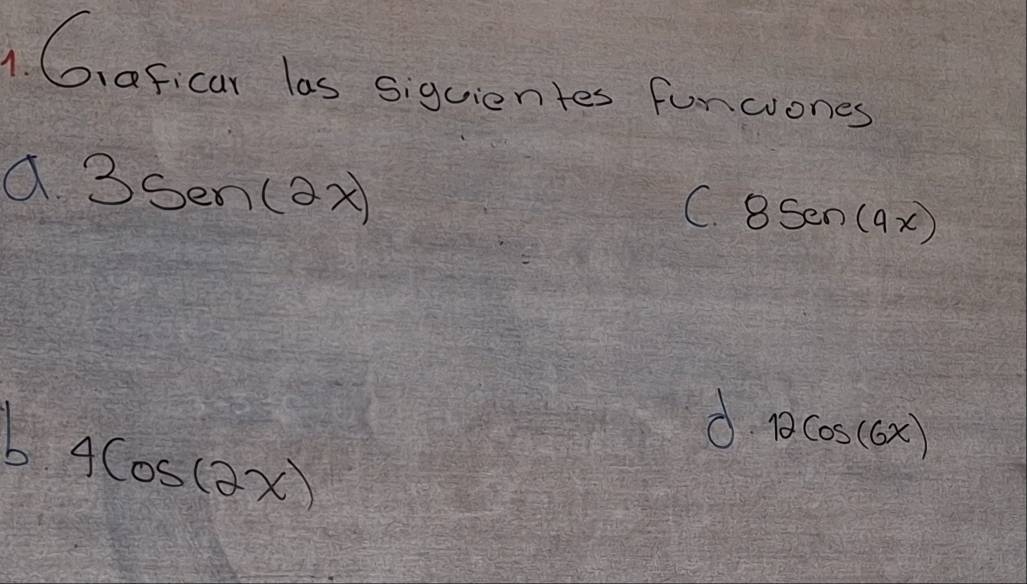 1. Graficar las siguientes funciones
a. 3 Sen(2x)
b. 4Cos(2x)
c. 8 Sen(4x)
d. 12 Cos(6x)